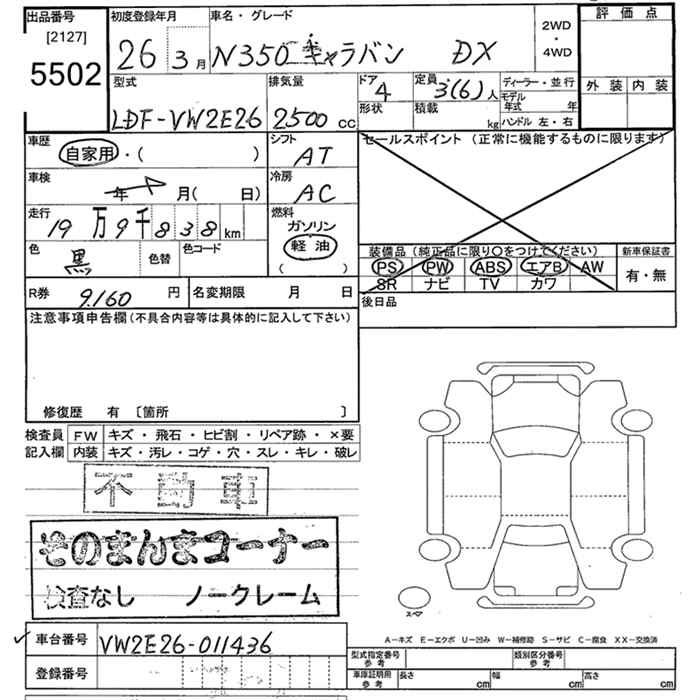 出品番号 初度登録年月 車名・グレード 2WD・4WD 評価点
[2127]
5502 26年 3月 NV350 キャラバン DX
型式 排気量 ドア 定員 ディーラー・並行 外装 内装
4 3(6)人 モデル年式 年
LDF-VW2E26 2500cc 形状 積載 kg ハンドル 左・右
車歴 シフト セールスポイント (正常に機能するものに限ります)
自家用・( ) AT
車検 冷房
年 月(日) AC
走行 燃料
19万9千838km ガソリン
色 色替 色コード 軽油 装備品 (純正品に限り〇をつけてください) 新車保証書
黒 ( ) PS PW ABS エアB AW 有・無
SR ナビ TV カワ
R券 9,160円 名変期限 月 日 後日品
注意事項申告欄(不具合内容等は具体的に記入して下さい)
修復歴 有 〔箇所 〕
検査員 FW キズ・飛石・ヒビ割・リペア跡・×要
記入欄 内装 キズ・汚レ・コゲ・穴・スレ・キレ・破レ
不動車
そのまんまコーナー
検査なし ノークレーム
スペア
A-キズ E-エクボ U-凹み W-補修跡 S-サビ C-腐食 XX-交換済
車台番号 VW2E26-011436
型式指定番号 参考 類別区分番号 参考
登録番号
車庫証明用 参考 長さ cm 幅 cm 高さ cm